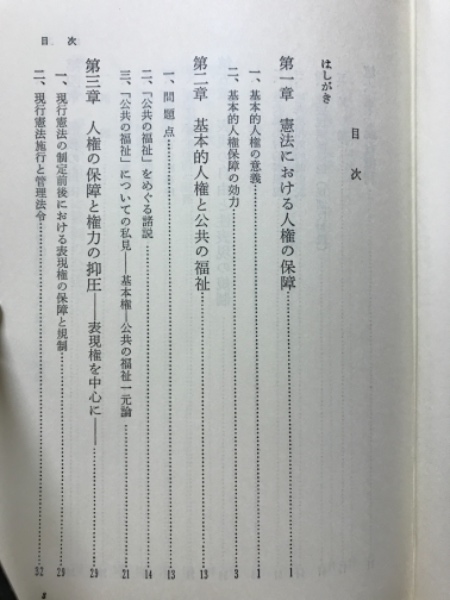 目次
目次
はしがき
第一章 憲法における人権の保障……1
一、基本的人権の意義……1
二、基本的人権保障の効力……3
第二章 基本的人権と公共の福祉……13
一、問題点……13
二、「公共の福祉」をめぐる諸説……14
三、「公共の福祉」についての私見――基本権―公共の福祉一元論……21
第三章 人権の保障と権力の抑圧――表現権を中心に――……29
一、現行憲法の制定前後における表現権の保障と規制……29
二、現行憲法施行と管理法令……32